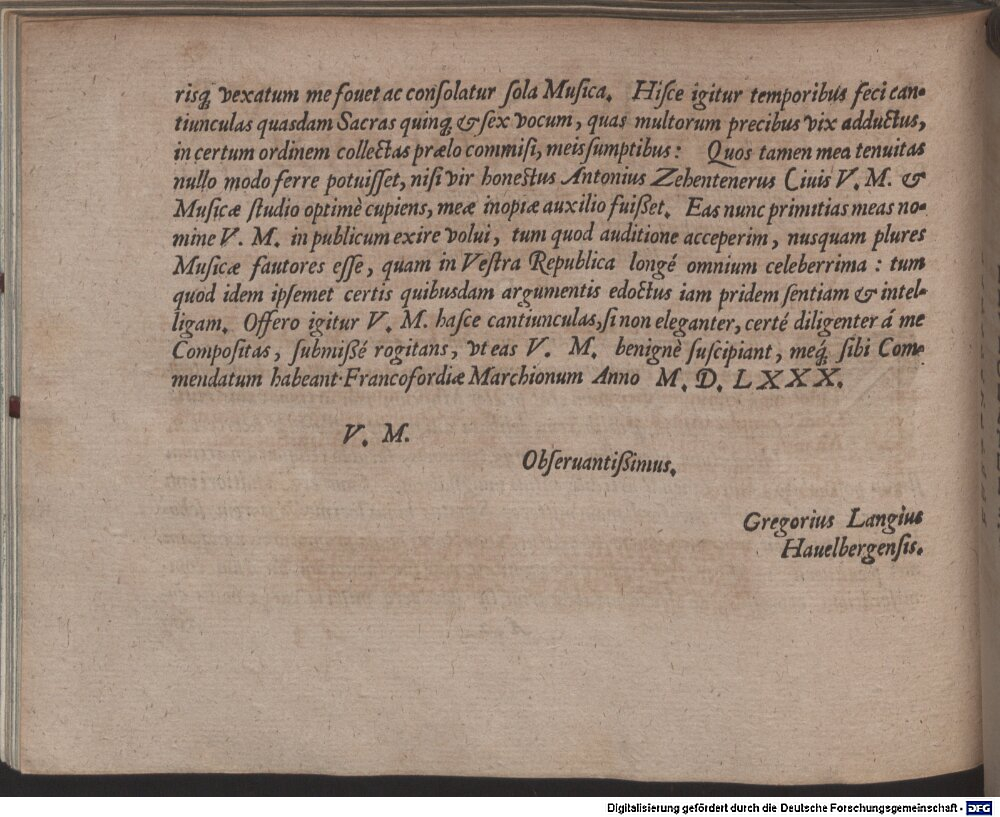 risq́ vexatum me fouet ac conſolatur ſola Muſica. Hiſce igitur temporibus feci can-
tiunculas quasdam Sacras quinq́ & ſex vocum, quas multorum precibus vix adductus,
in certum ordinem collectas prælo commiſi, meis ſumptibus: Quos tamen mea tenuitas
nullo modo ferre potuiſſet, niſi vir honestus Antonius Zehentenerus Ciuis V. M. &
Muſicæ ſtudio optimè cupiens, meæ inopiæ auxilio fuißet. Eas nunc primitias meas no-
mine V. M. in publicum exire volui, tum quod auditione acceperim, nusquam plures
Muſicæ fautores eſſe, quam in Veſtra Republica longé omnium celeberrima: tum
quod idem ipſemet certis quibusdam argumentis edoctus iam pridem ſentiam & intel-
ligam. Offero igitur V. M. haſce cantiunculas, ſi non eleganter, certé diligenter á me
Compoſitas, ſubmißé rogitans, vt eas V. M. benignè ſuſcipiant, meq́ ſibi Com-
mendatum habeant. Francofordiæ Marchionum Anno M. D. LXXX.
V. M.
Obſeruantißimus.
Gregorius Langius
Hauelbergenſis.
Digitalisierung gefördert durch die Deutsche Forschungsgemeinschaft - DFG